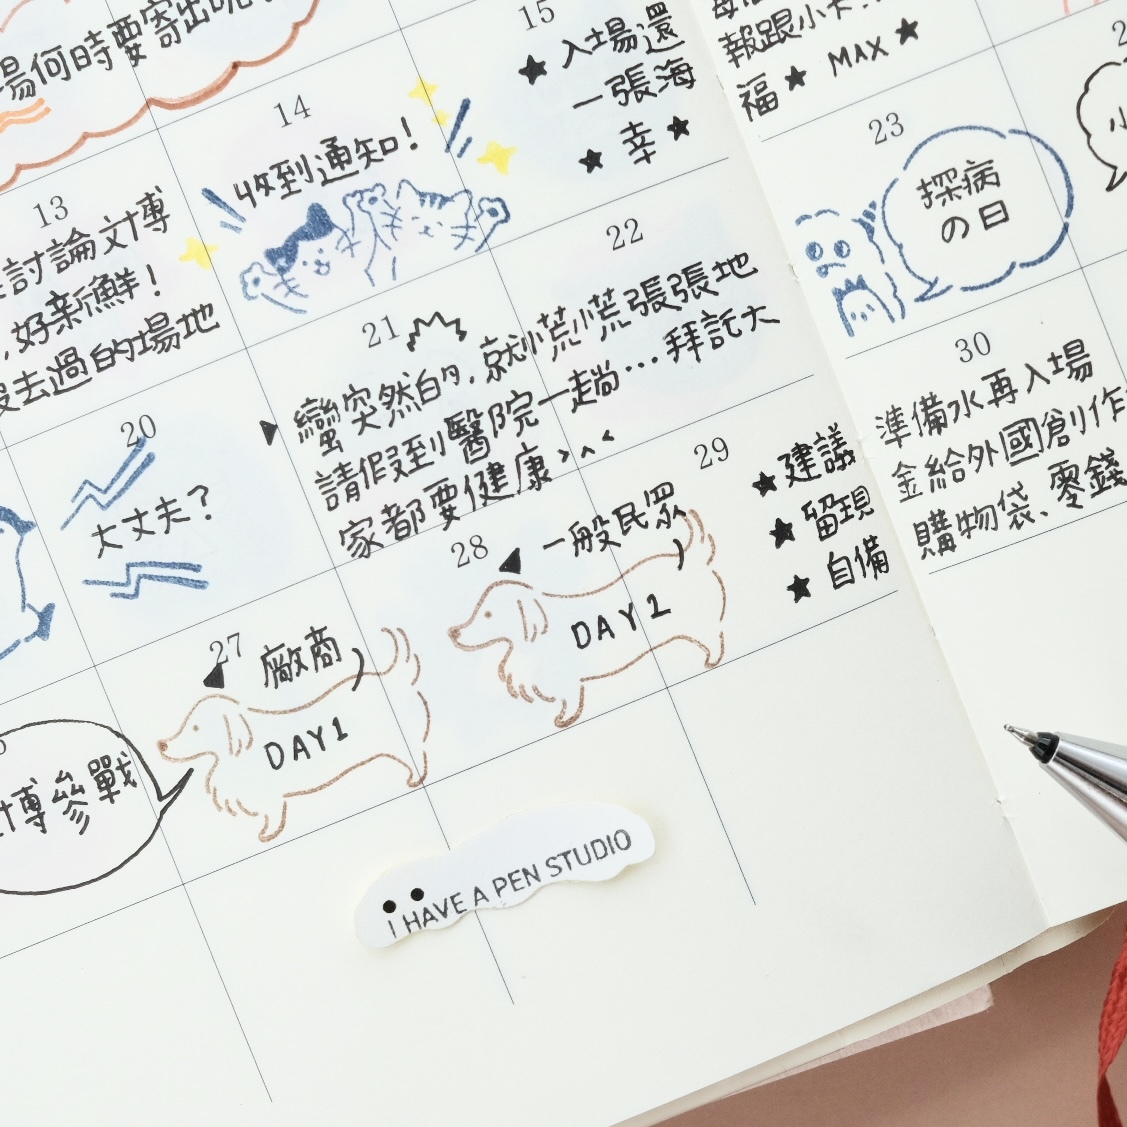 場何時要寄出呢
13
討論文博
好新鮮!
沒去過的場地
14
收到通知!
15
★入場還
一張海
★幸★
報跟小卡
福★ MAX★
20
大丈夫?
21
蠻突然的,就慌慌張張地
請假到醫院一趟...拜託大
家都要健康>^<
22
23
探病
の日
參戰
27
廠商
DAY1
28
一般民眾
DAY2
29
★建議
★留現
★自備
30
準備水再入場
金給外國創作
購物袋、零錢
I HAVE A PEN STUDIO